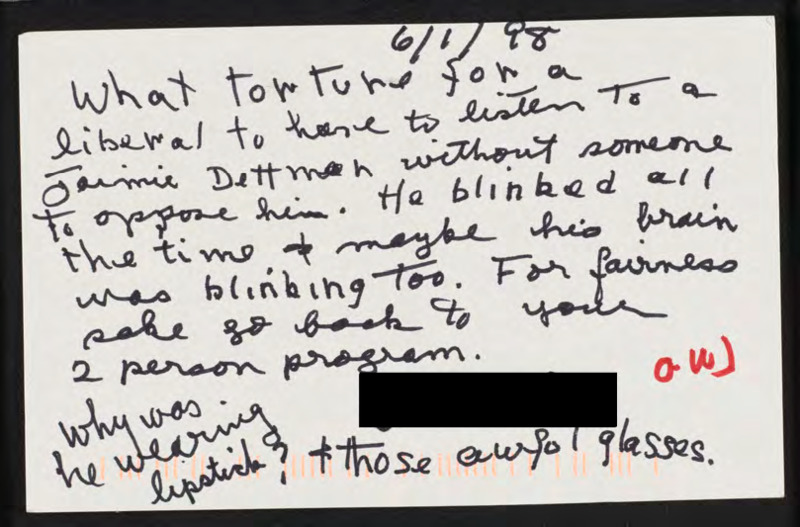 6/1/98
What torture for a
liberal to have to listen To a
Jaimie Dettman without someone
To oppose him. He blinked all
the time & maybe his brain
was blinking Too. For fairness
sake go back to your
2 person program.
Why was
he wearing
lipstick? & those awful glasses.